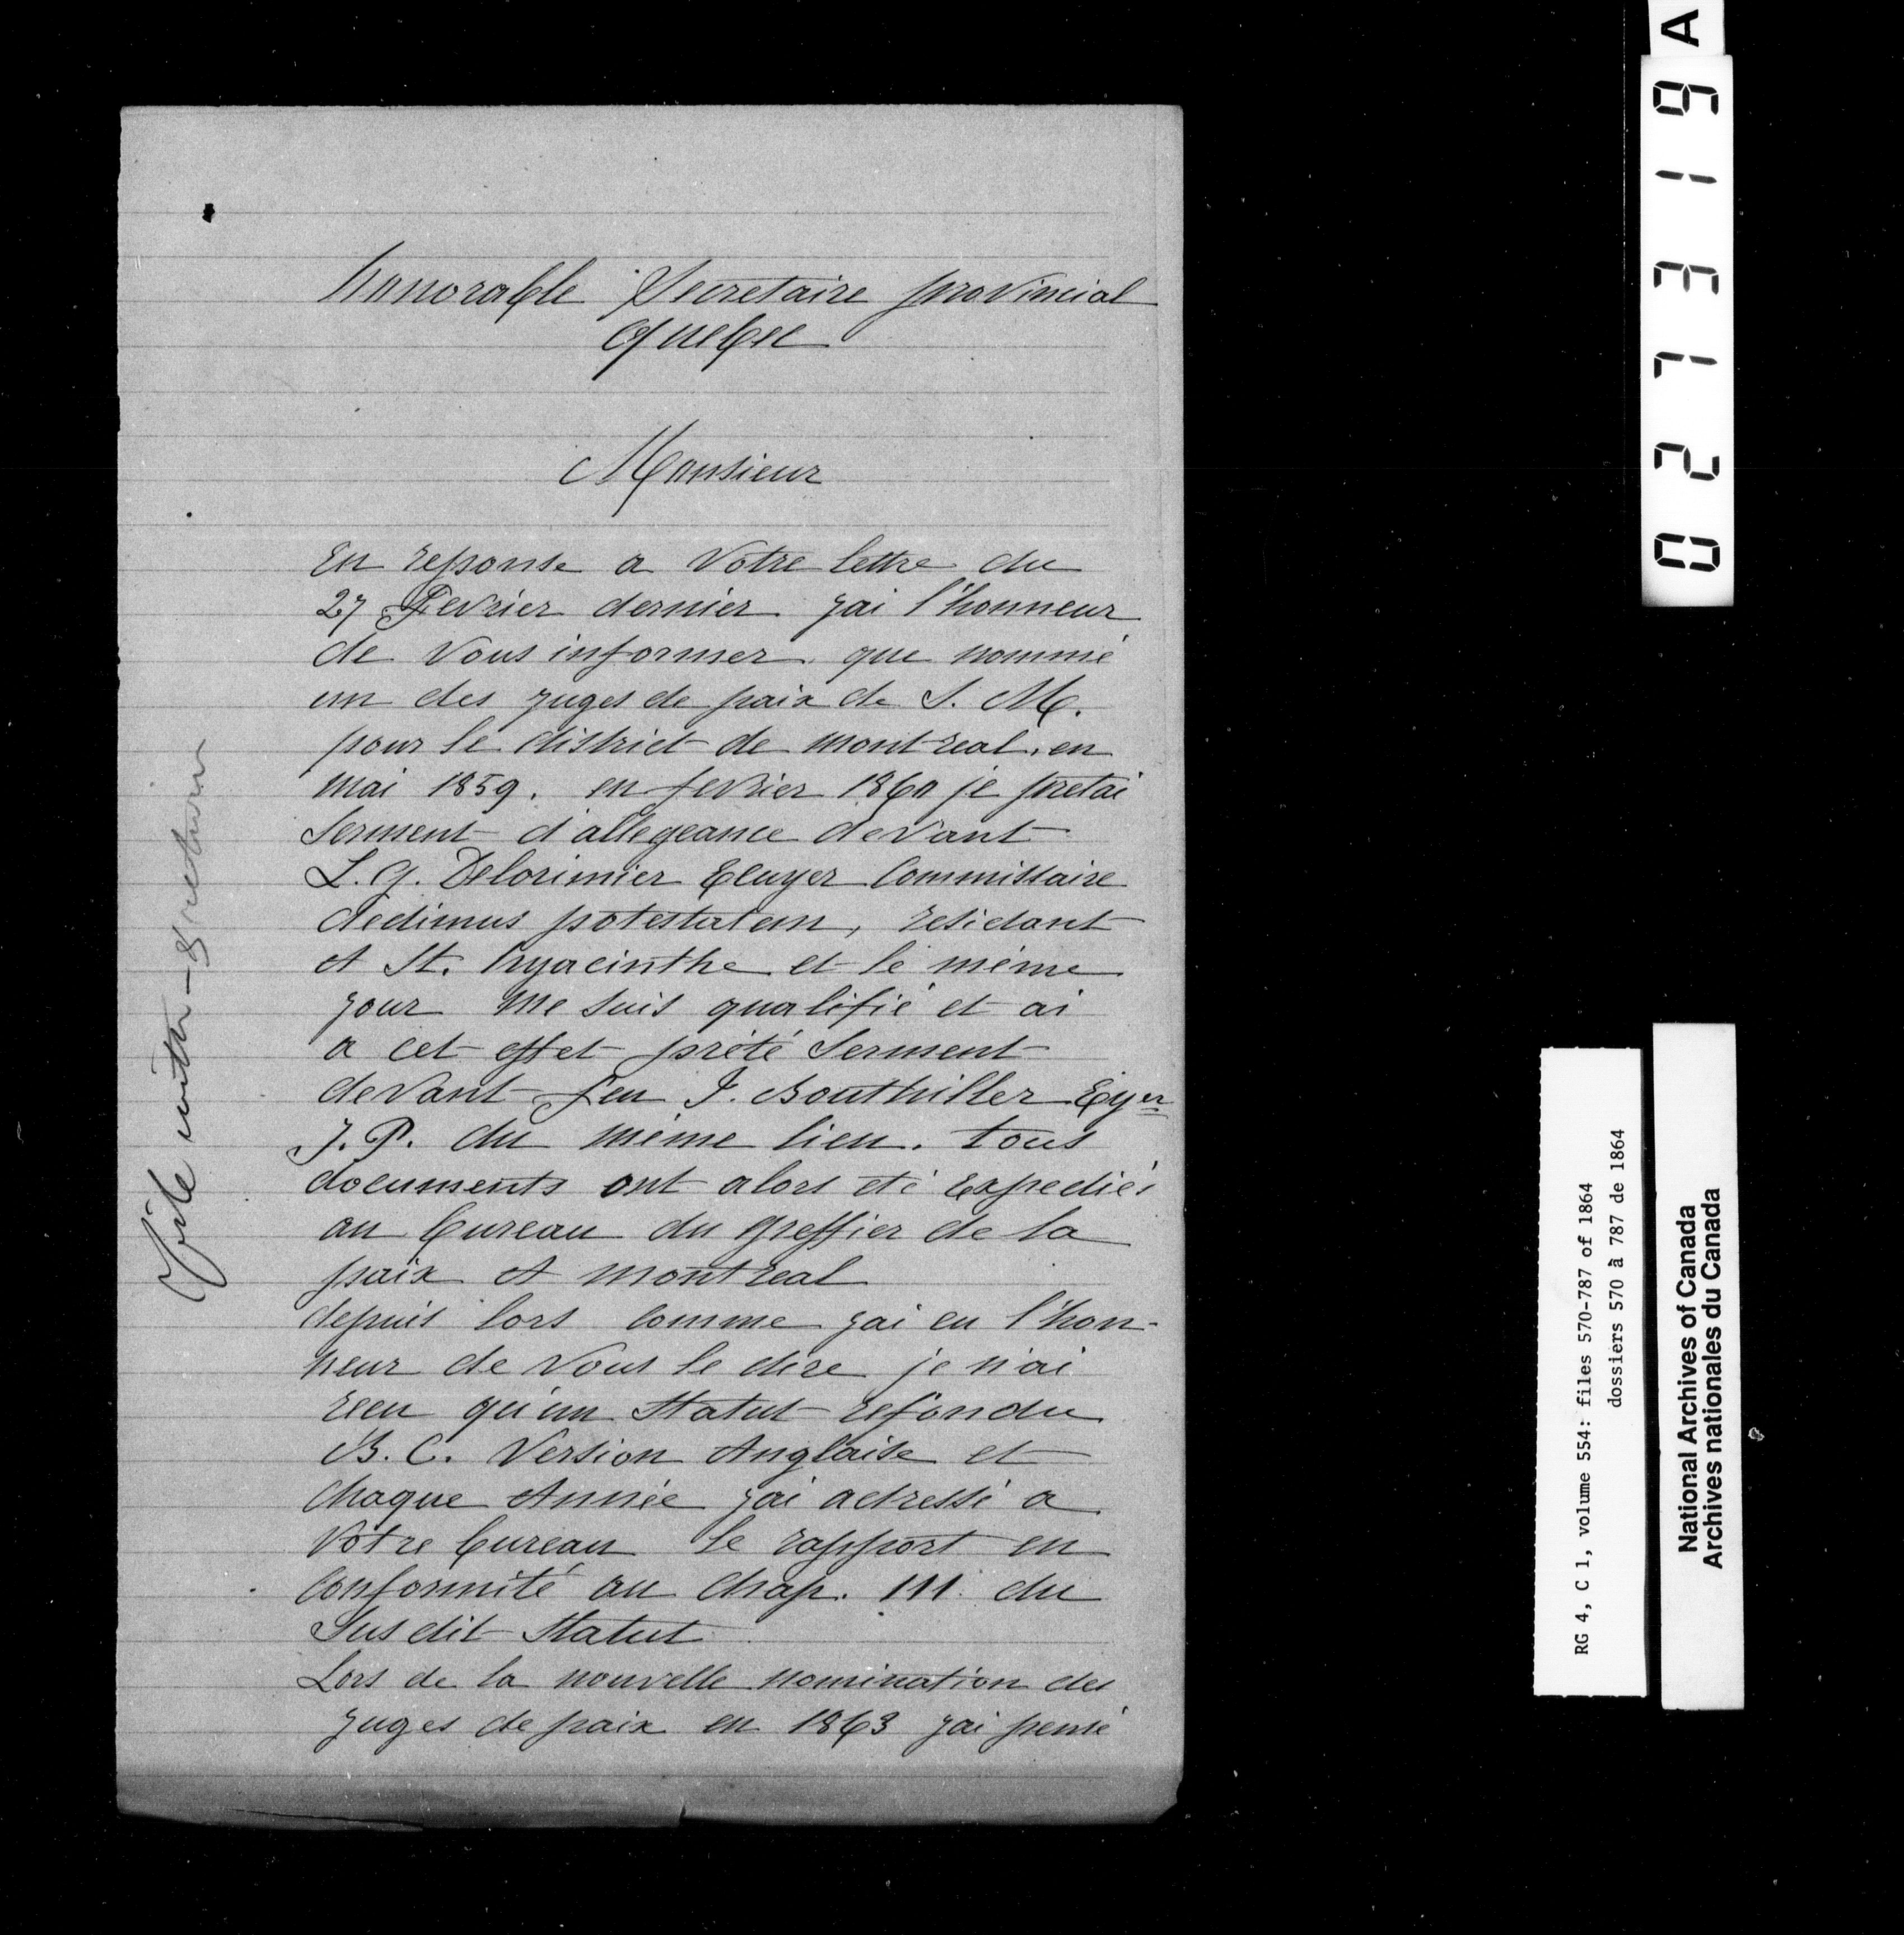 honorable Secretaire provincial
Quebec
Monsieur
En reponse a Votre lettre du
27 Fevrier dernier jai l'honneur
de Vous informer que nommé
un des juges de paix de S. M.
pour le district de montreal, en
mai 1859. en fevrier 1860 je pretai
Serment d'allegeance devant
L. G. Delorimier Ecuyer Commissaire
dedimus potestatem, residant
A St. hyacinthe et le même
jour me suis qualifié et ai
a cet effet prété Serment
devant feu J. Bouthiller Eyer
J. P. du même lieu. tous
documents ont alors été Expediés
au bureau du Greffier de la
paix A montreal
depuis lors comme jai eu l'hon-
neur de Vous le dire je n'ai
recu qu'un Statut refondu
B. C. Version Anglaise et
chaque Année jai adressé a
Votre bureau le rapport en
conformité au Chap. 111 du
Susdit Statut
Lors de la nouvelle nomination des
juges de paix en 1863 jai pensé
file with - & return
027319A
RG 4, C 1, volume 554: files 570-787 of 1864
dossiers 570 à 787 de 1864
National Archives of Canada
Archives nationales du Canada